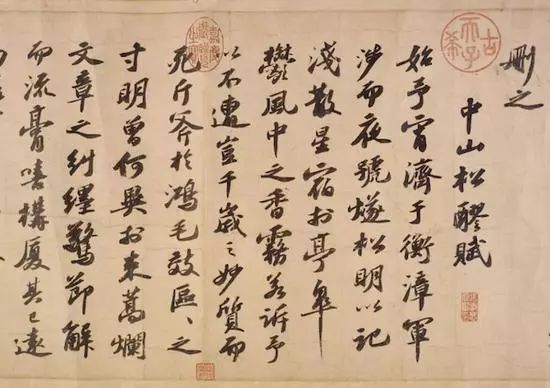 刪之
古希天子
中山松醪賦
始予宵濟于衡漳軍
涉而夜號燧松明以記
淺散星宿扵亭皋
欝風中之香霧若訴予
以不遭豈千歲之妙質而
死斤斧於鴻毛效區〻之
寸明曾何異扵束蒿爛
文章之糾纆驚節解
而流膏嘻構廈其已遠